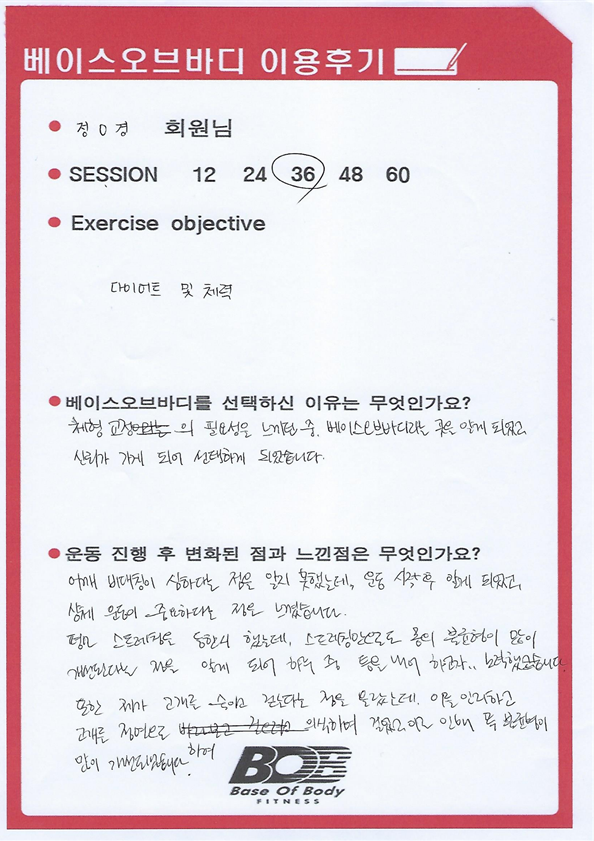 베이스오브바디 이용후기
정O경 회원님
SESSION 12 24 36 48 60
Exercise objective
다이어트 및 체력
베이스오브바디를 선택하신 이유는 무엇인가요?
체형 교정이라는 의 필요성을 느끼던 중, 베이스오브바디라는 곳을 알게 되었고
신뢰가 가게 되어 선택하게 되었습니다.
운동 진행 후 변화된 점과 느낀점은 무엇인가요?
어깨 비대칭이 심하다는 점을 알지 못했는데, 운동 시작 후 알게 되었고,
상체 운동이 중요하다는 점을 느꼈습니다.
평소 스트레칭을 등한시 했는데, 스트레칭만으로도 몸의 불균형이 많이
개선된다는 점을 알게 되어 하루 중 틈을 내어 하고자.. 노력했습니다.
또한 제가 고개를 숙이고 걷는다는 점을 몰랐는데, 이를 인지하고
고개를 정면으로 의식하며 걸었고, 이로 인해 목 불균형이
많이 개선되었습니다. 하여
BOB
Base Of Body
FITNESS